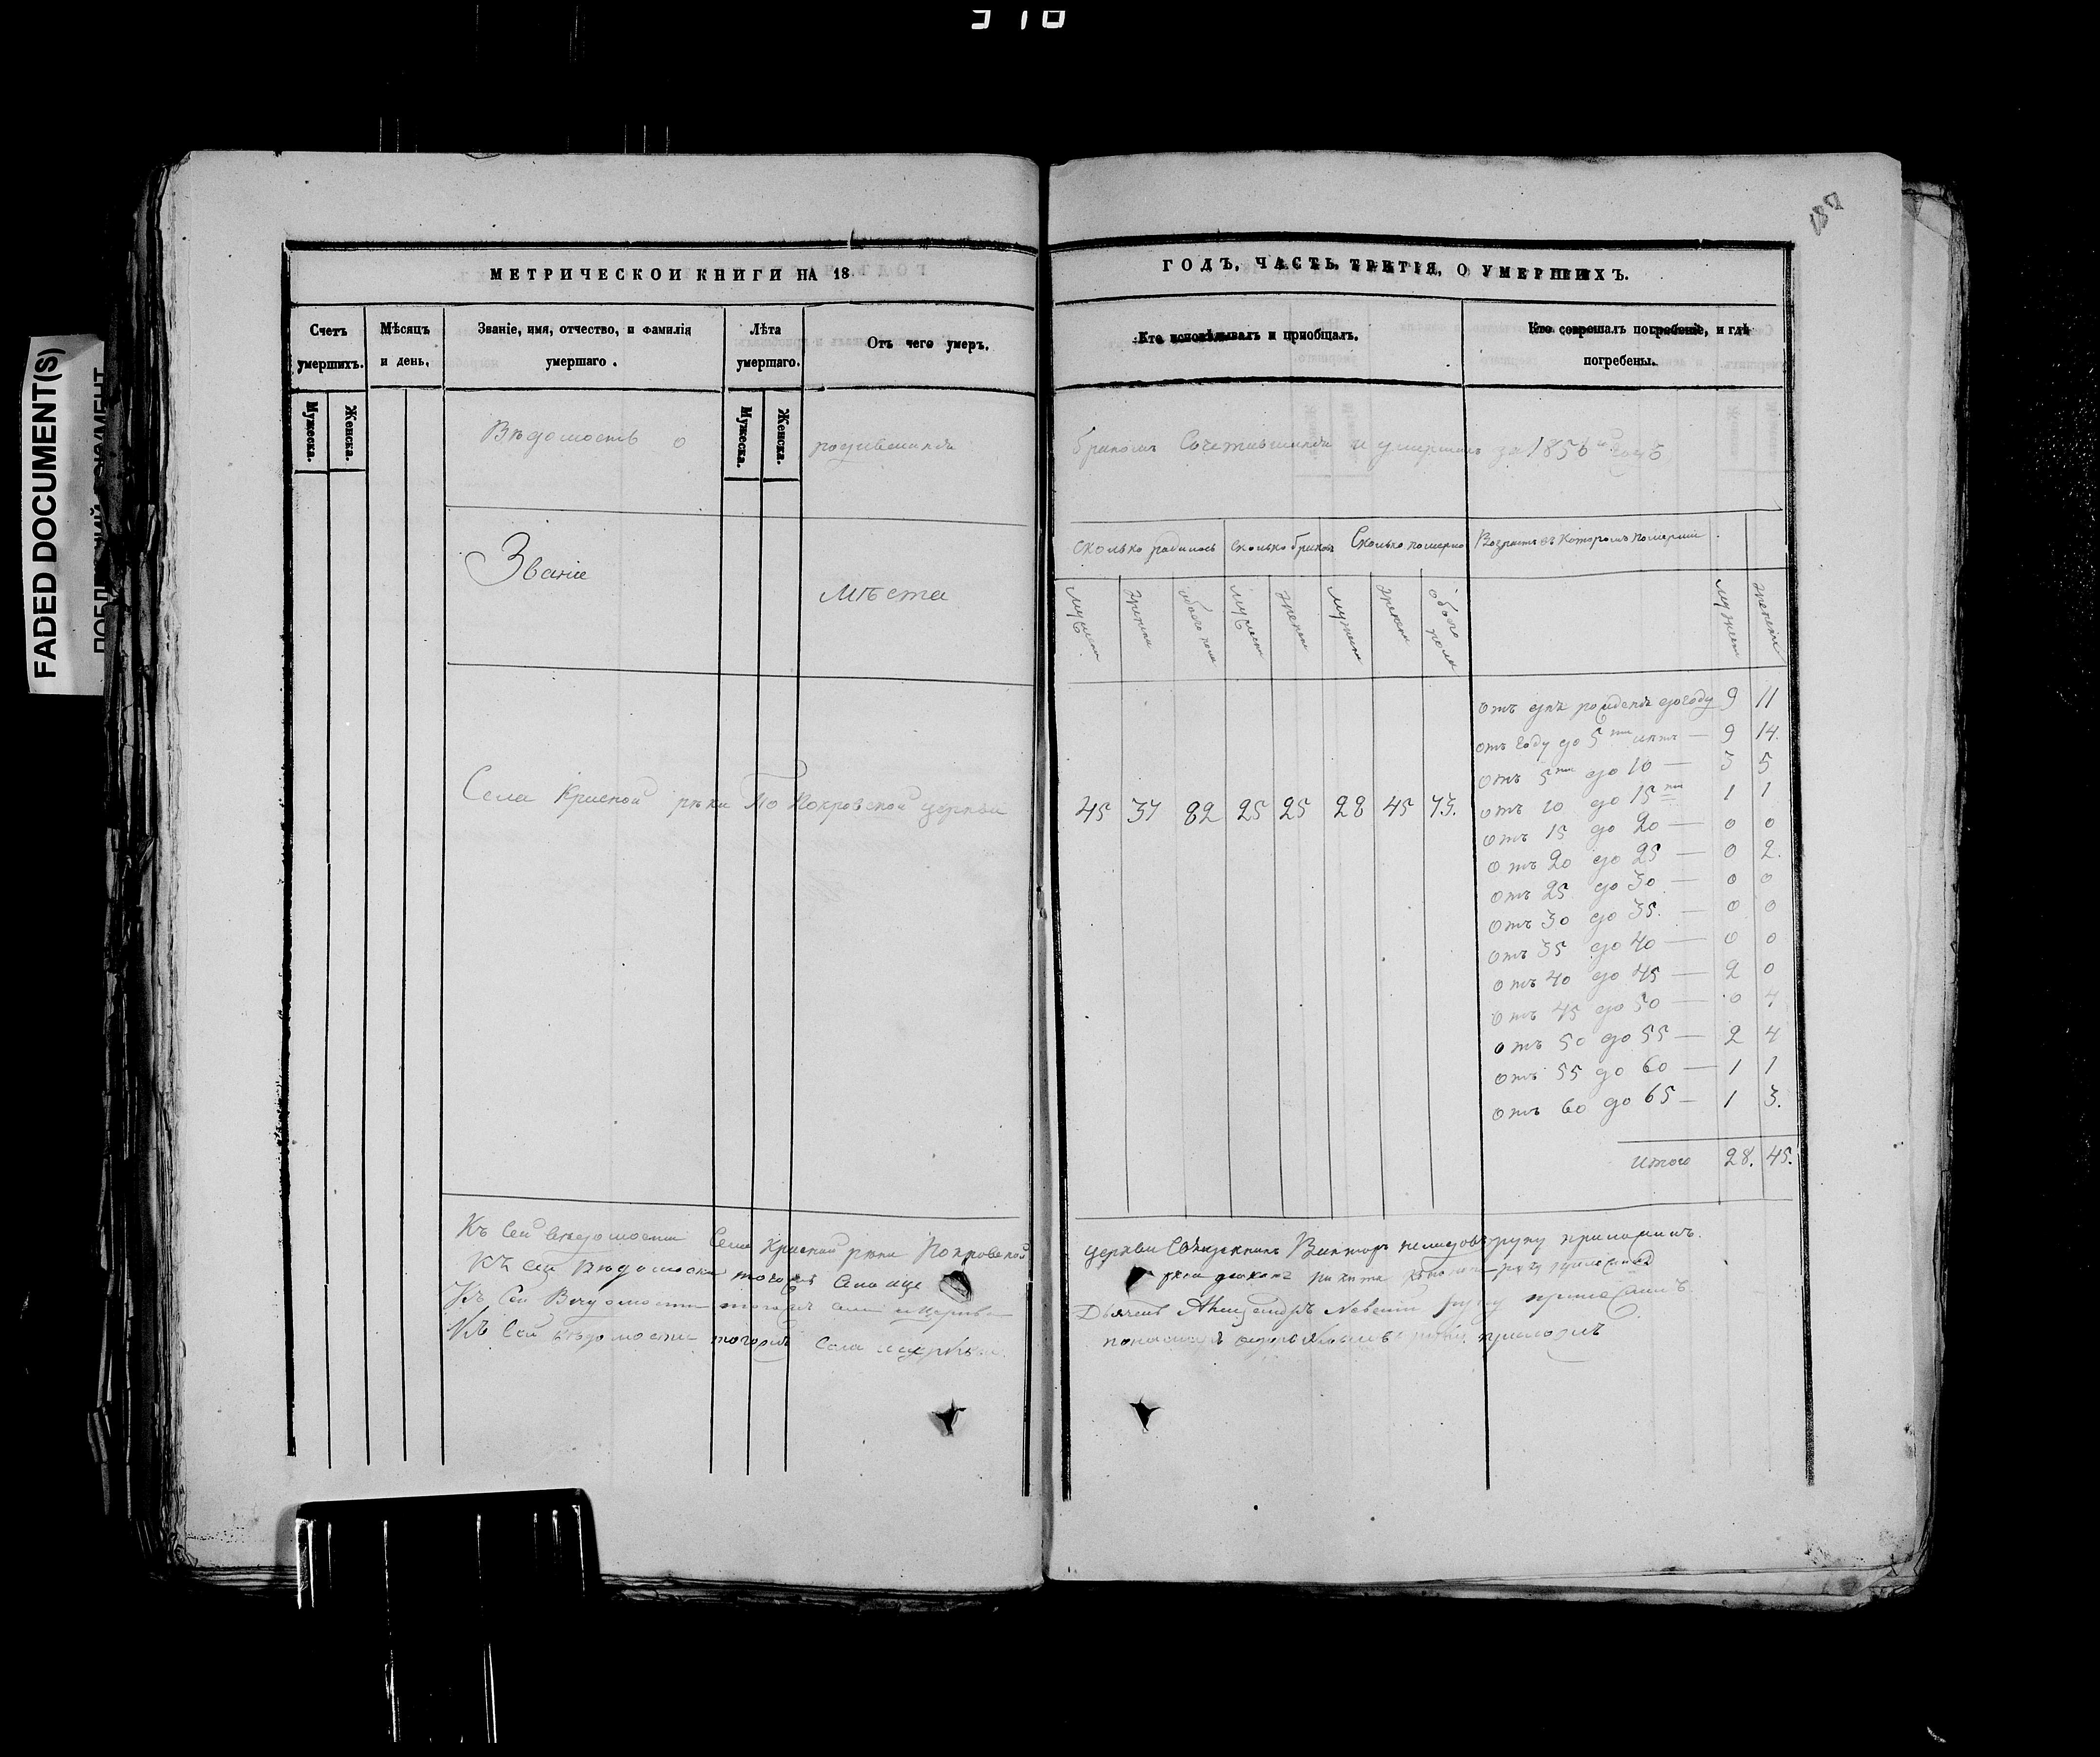 FADED DOCUMENT(S)
187
МЕТРИЧЕСКОЙ КНИГИ НА 18
ГОДЪ, ЧАСТЬ ТРЕТІЯ, О УМЕРШИХЪ.
Счетъ умершихъ.
Мѣсяцъ и день.
Званіе, имя, отчество, и фамилія умершаго.
Лѣта умершаго.
Отъ чего умеръ.
Кто исповѣдывалъ и приобщалъ.
Кто совершалъ погребеніе, и гдѣ погребены.
Мужеска.
Женска.
Мужеска.
Женска.
Вѣдомость о родившихся бракомъ сочетавшихся и умершихъ за 1856й годъ
Званіе мѣста
Сколько родилось
Сколько браковъ
Сколько померло
Возрастъ въ которомъ померли
мужеск
женска
обоего пола
мужеск
женска
мужеск
женска
обоего пола
мужеск
женска
Села Красной рѣки по Покровской церкви
45 37 82 25 25 28 45 73.
отъ дня рожденія до году 9 11
отъ году до 5ти лѣтъ — 9 14.
отъ 5ти до 10 — 3 5
отъ 10 до 15ти 1 1
отъ 15 до 20 — 0 0
отъ 20 до 25 — 0 2.
отъ 25 до 30 — 0 0
отъ 30 до 35. — 0 0
отъ 35 до 40 — 0 0
отъ 40 до 45 — 2 0
отъ 45 до 50 — 0 4
отъ 50 до 55 — 2 4
отъ 55 до 60 — 1 1
отъ 60 до 65 — 1 3.
Итого 28. 45.
Къ сей вѣдомости Села Красной рѣки Покровской церкви Священникъ Викторъ руку приложилъ.
Къ сей вѣдомости тогожъ Села
Къ сей Вѣдомости тогожъ села и церкви Дьячекъ руку приложилъ.
Къ сей вѣдомости тогожъ Села и церкви пономарь приложилъ